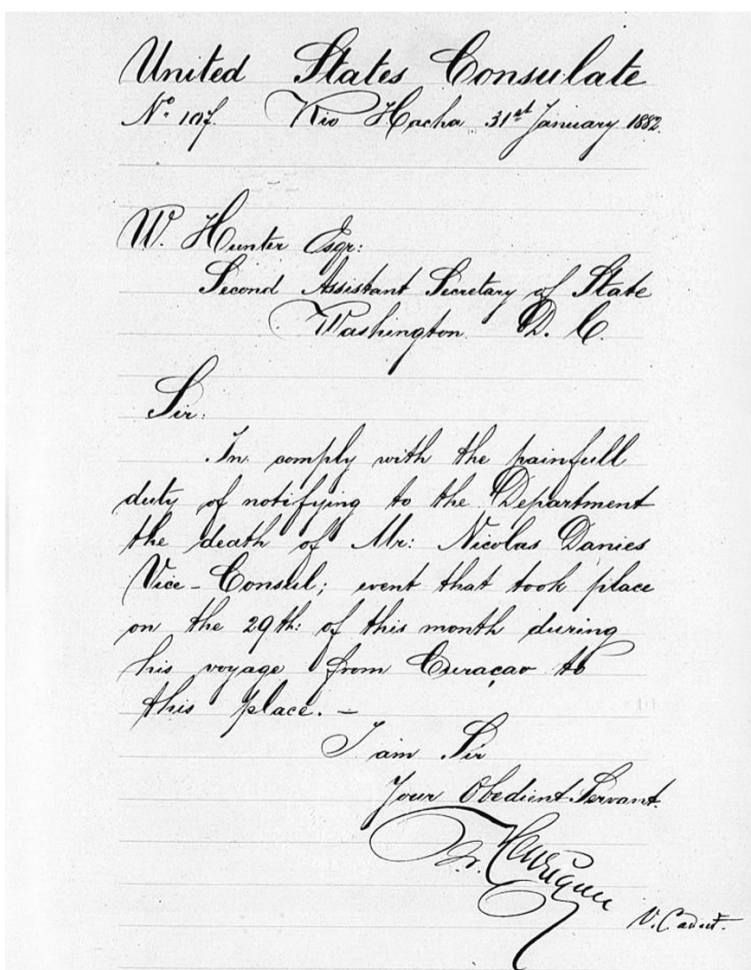 United States Consulate
Nº 107. Rio Hacha 31st January 1882.
W. Hunter Esqr:
Second Assistant Secretary of State
Washington D. C.
Sir:
In comply with the painfull
duty of notifying to the Department
the death of Mr: Nicolas Danies
Vice-Consul; event that took place
on the 29th: of this month during
his voyage from Curaçao to
this place. —
I am Sir
Your Obedient Servant.